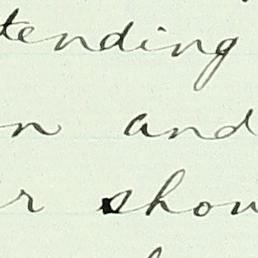 tending
n and
r shou